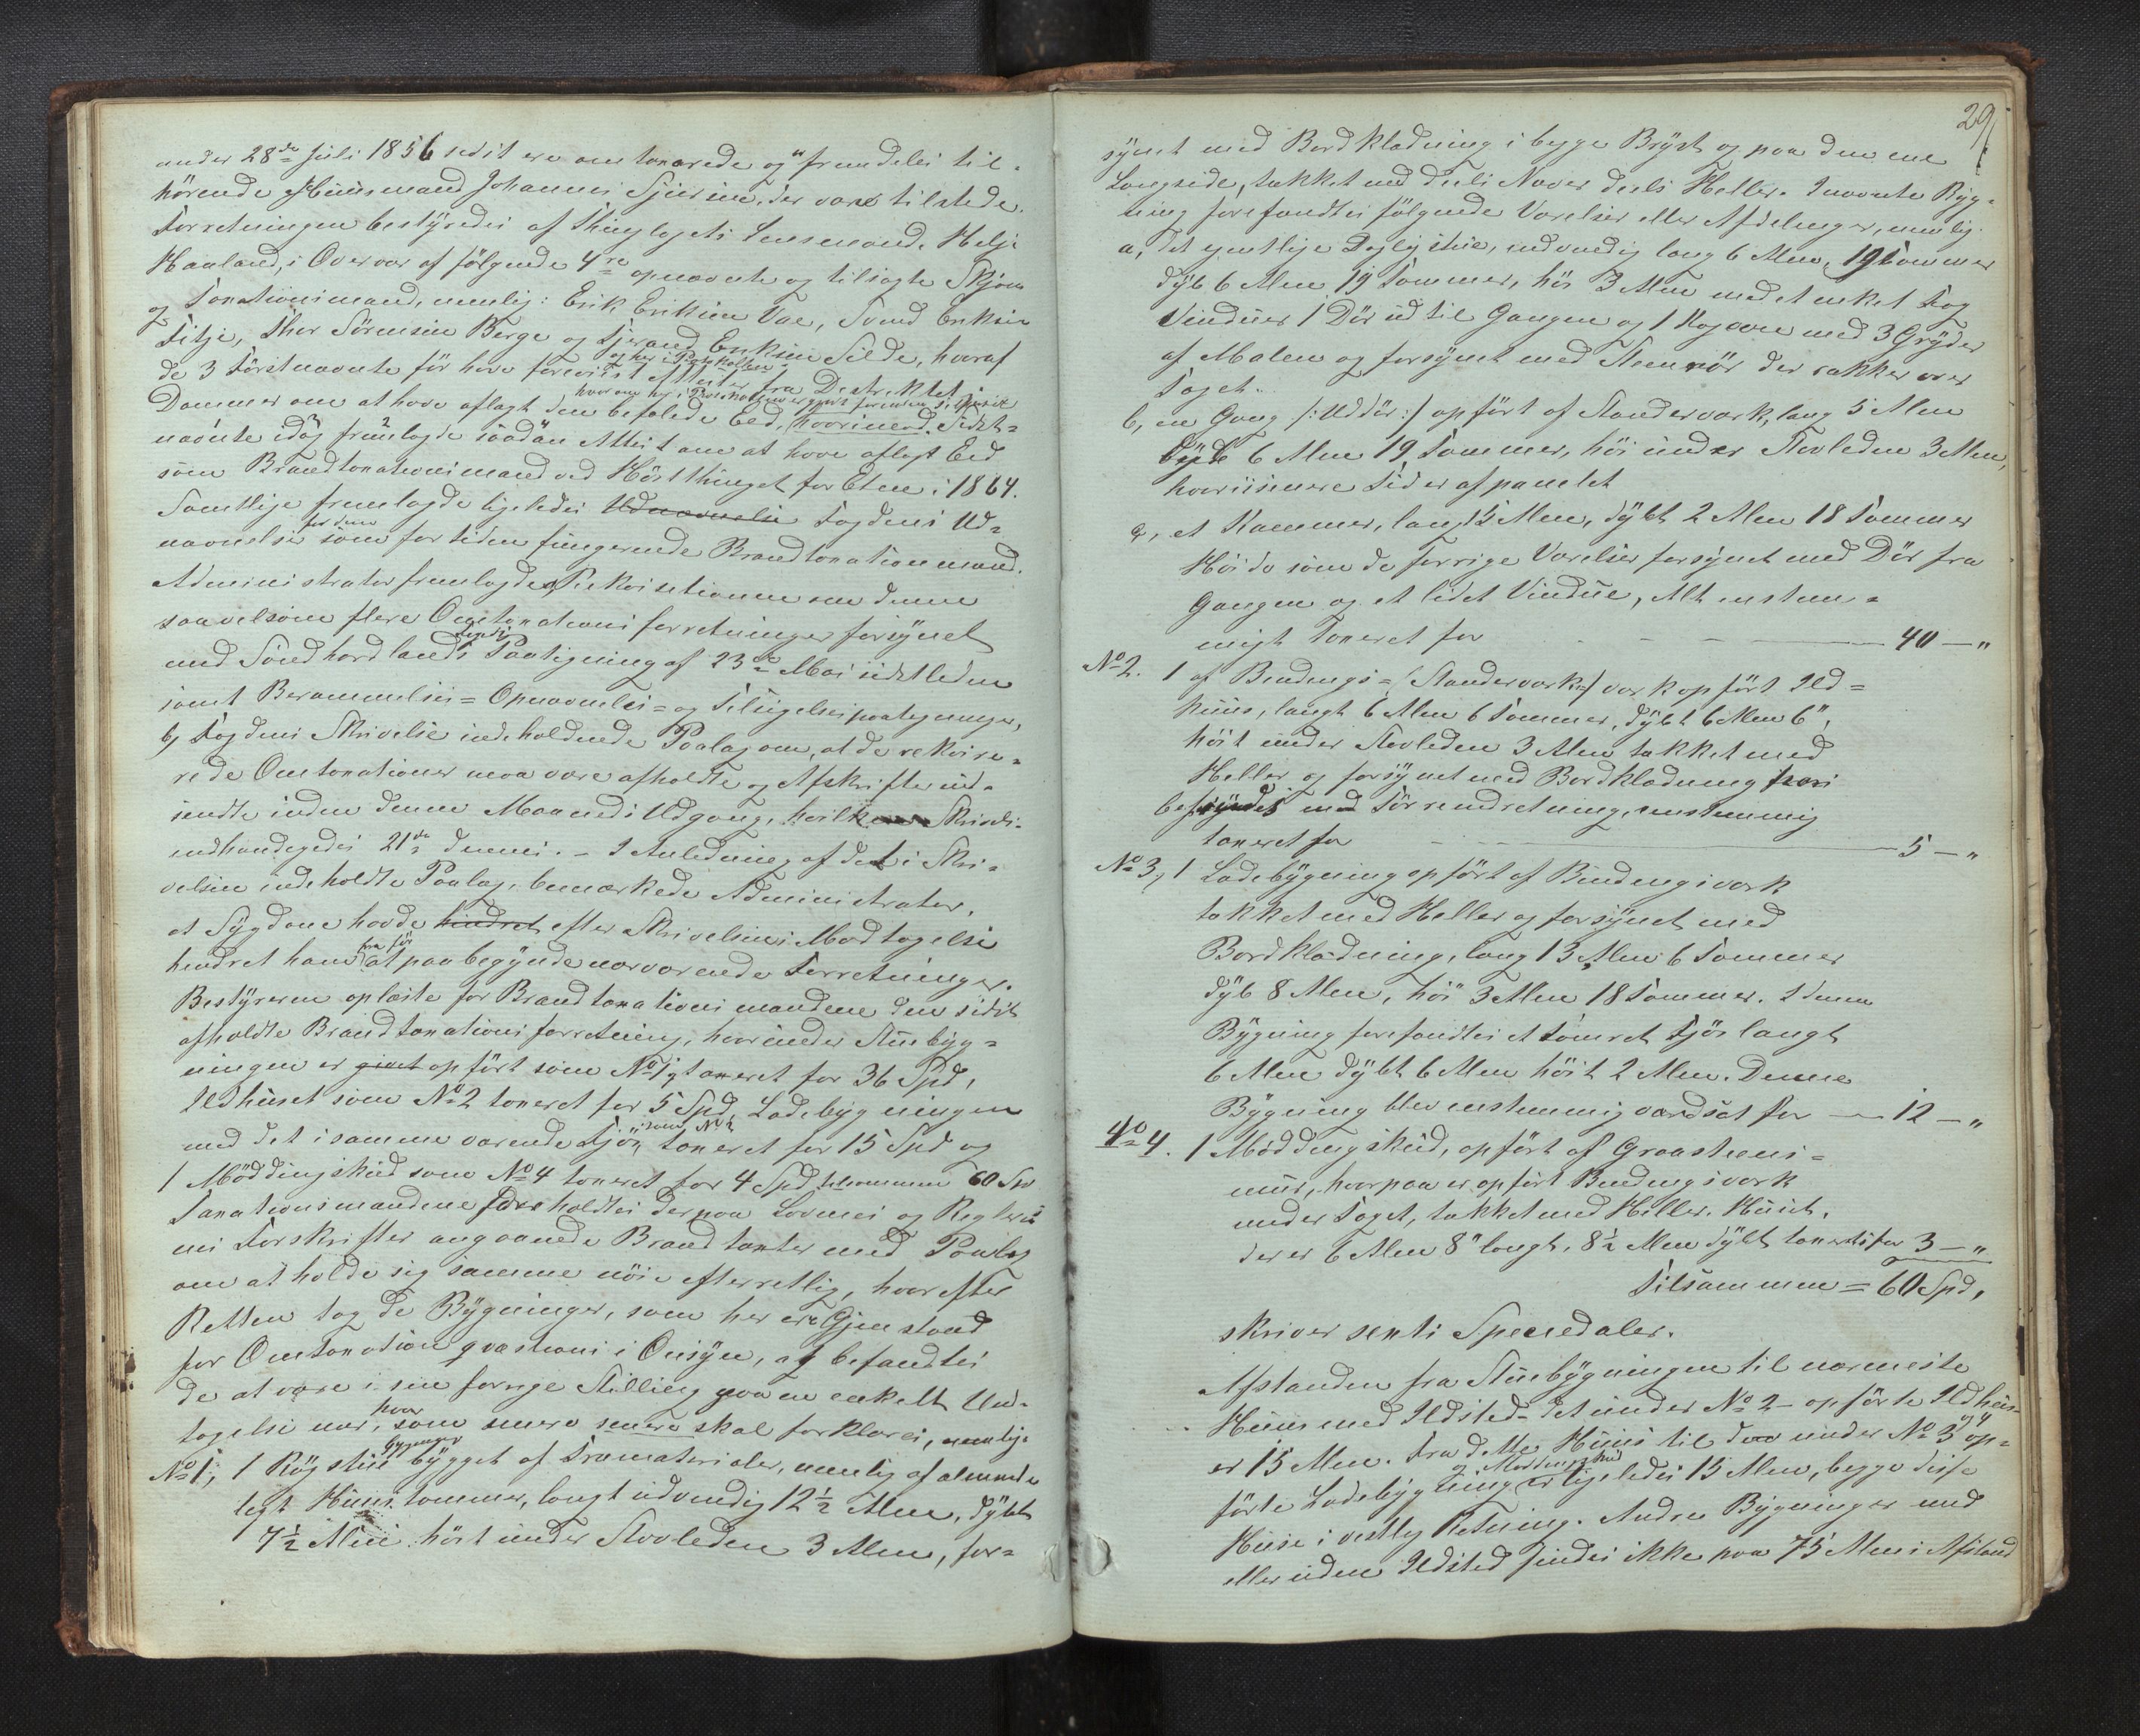 under 28de Juli 1856 sidst ere omtaxerede og fremdeles til-
hörende Huusmand Johannes Sjursen, der vare tilstede.
Forretningen bestyredes af Thinglagets Lensmand, Helje
Haaland, i Overvær af fölgende 4re opnævnte og tilsagte Skjøns
og Taxationsmænd, nemlig: Erik Eriksen Vae, Svend Eriksen
Fitje, Thor Sörensen Berge og Tjerand Eriksen Silde, hvoraf
og her i Protokollen
de 3 Förstnævnte för have foreviist Attester fra Destriktets
hvorom her i Protokollen er gjort fornöden
Dommer om at have aflagt den befalede Eed, hvorimod Sidst-
nævnte idag fremlagde saadan Attest om at have aflagt Eed
som Brandtaxationsmand ved Höstthinget for Etne i 1864.
Samtlige fremlagde ligeledes Udnævnelse Fogdens Ud-
for dem
nævnelse som for tiden fungerende Brandtaxationsmænd.
Administrator fremlagde a, Rekvisitionen om denne
saavelsom flere Omtaxationsforretninger forsynet
med Söndhordlands Paategning af 23de Mai sidstleden
samt Berammelses- Opnævnelses- og Tilsigelsespaategninger,
b, Fogdens Skrivelse indeholdende Paalæg om, at de rekvire-
rede Omtaxationer maa være afholdte og Afskrifter ind-
sendte inden denne Maaneds Udgang, hvilken Skrivelse
indhændigedes 21de dennes. – I Anledning af det i Skri-
velsen indeholdte Paalæg, bemærkede Administrator,
at Sygdom havde hindret efter Skrivelsens Modtagelse
fra för
hindret ham at paabegynde nærværende Forretninger.
Bestyreren oplæste for Brandtaxationsmændene den sidst
afholdte Brandtaxationsforretning, hvorunder Stuebyg-
ningen er givet opfört som No 1, taxeret for 36 Spd,
Ildhuset som No 2 taxeret for 5 Spd, Ladebygningen
som No 3
med det i samme værende Fjös, taxeret for 15 Spd og
1 Möddingskud som No 4 taxeret for 4 Spd, tilsammen 60 Spd
Taxationsmændene foreholdtes derpaa Lovens og Reglemen-
nes Forskrifter angaaende Brandtaxter med Paalæg
om at holde sig samme nöie efterretlig, hvorefter
Retten tog de Bygninger, som her ere Gjenstand
for Omtaxation qvæstionis i Öiesyn, og befandtes
de at være i sin forrige Stilling paa en enkelt Und-
hvor
tagelse nær, som snere senere skal forklares, nemlig:
bygning
No 1, 1 Rögstue bygget af Træmaterialer, nemlig af alminde-
ligt Huustömmer, langt udvendig 12½ Alen, dybt
7½ Alen höit under Stavleden 3 Alen, for-
29
synet med Bordklædning i begge Bryst og paa den ene
Langside, tækket med deels Næver deels Heller. I nævnte Byg-
ning forefandtes fölgende Værelser eller Afdelinger, nemlig:
a, det egentlige Dagligstue, indvendig lang 6 Alen 19 Tommer
dyb 6 Alen 19 Tommer, höi 3 Alen med et enkelt Fag
Vinduer 1 Dör ud til Gangen og 1 Kogeovn med 3 Gryder
af Malen og forsynet med Steenrör der rækker over
Taget.
b, en Gang /: Uddör :/ opfört af Standerværk, lang 5 Alen
dyb 6 Alen 19 Tommer, höi under Stavleden 3 Alen,
hvis inere Sider af panelet
c, et Kammer, langt 5 Alen, dybt 2 Alen 18 Tommer
Höide som de forrige Værelser forsynet med Dör fra
Gangen og et lidet Vindue, Alt enstem-
migt taxeret for – – – 40 – "
No 2. 1 af Bindings- /Standerværk/ værk opfört Ild-
huus, langt 6 Alen 6 Tommer, dybt 6 Alen 6",
höit under Stavleden 3 Alen tækket med
Heller og forsynet med Bordklædning
med Törreindretning, enstemmig
taxeret for – – – 5 – "
No 3, 1 Ladebygning opfört af Bindingsværk
tækket med Heller og forsynet med
Bordklædning, lang 13 Alen 6 Tommer
dyb 8 Alen, höi 3 Alen 18 Tommer. I denne
Bygning forefandtes et tömret Fjös langt
6 Alen dybt 6 Alen höit 2 Alen. Denne
Bygning blev enstemmig værdsat for – 12 – "
No 4. 1 Möddingskud, opfört af Graasteens-
muur, hvorpaa er opfört Bindingsværk
under Taget, tækket med Heller. Huset,
der er 6 Alen 8" langt, 8½ Alen dybt taxertes for 3 – "
Tilsammen = 60 Spd,
skriver sexti Speciedaler.
Afstanden fra Stuebygningen til nærmeste
Huus med Ildsted – det under No 2 – opförte Ildhuus
er 15 Alen. Fra dette Huus til den under No 3 op-
og Möddingskud
förte Ladebygning er ligeledes 15 Alen, begge disse
Huse i vestlig Retning. Andre Bygninger med
eller uden Ildsted findes ikke paa 75 Alens Afstand